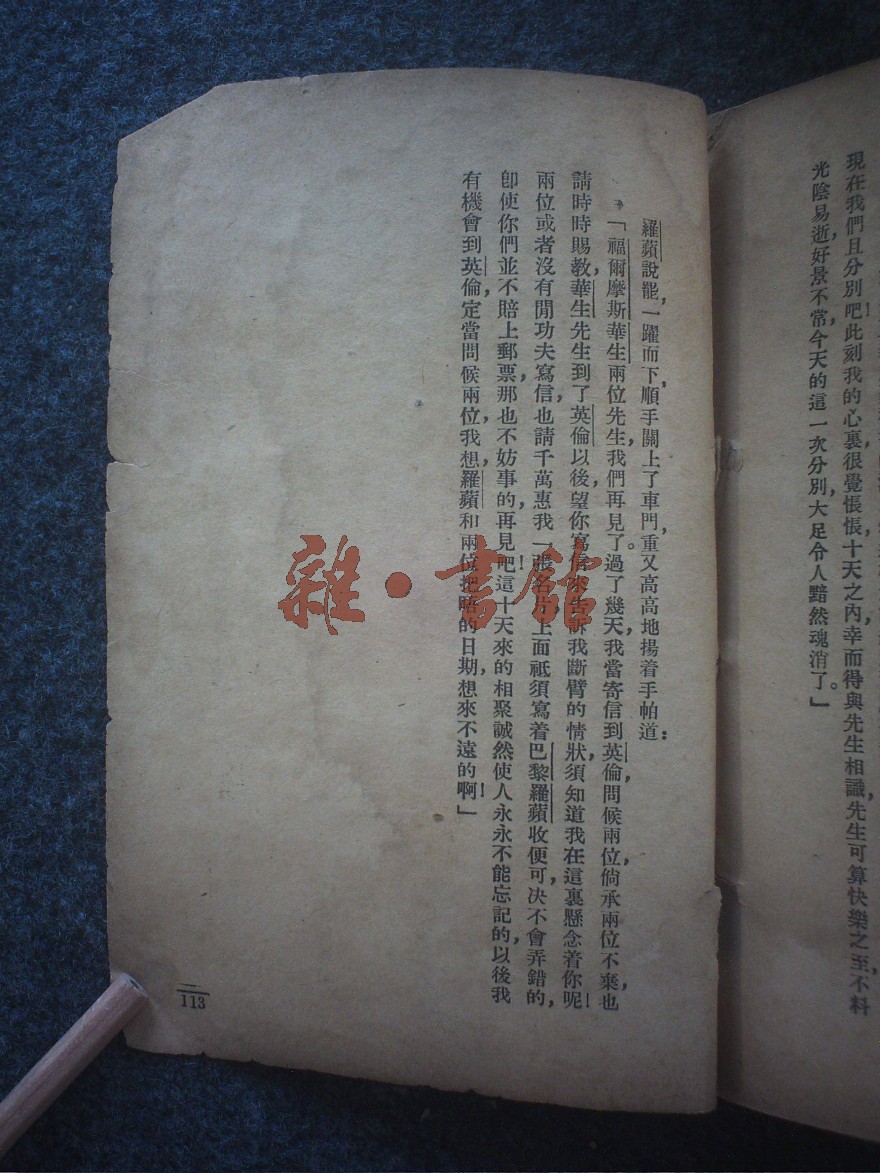 現在我們且分別吧!此刻我的心裏,很覺悵悵,十天之內,幸而得與先生相識,先生可算快樂之至,不料
光陰易逝,好景不常,今天的這一次分別,大足令人黯然魂消了。」
羅蘋說罷,一躍而下,順手關上了車門,重又高高地揚着手帕道:
「福爾摩斯華生兩位先生,我們再見了。過了幾天,我當寄信到英倫,問候兩位,倘承兩位不棄,也
請時時賜教,華生先生到了英倫以後,望你寫信來告訴我斷臂的情狀,須知道我在這裏懸念着你呢!
兩位或者沒有閒功夫寫信,也請千萬惠我一張名片,上面祇須寫着巴黎羅蘋收便可,決不會弄錯的,
卽使你們並不賠上郵票,那也不妨事的,再見吧!這十天來的相聚,誠然使人永永不能忘記的,以後我
有機會到英倫,定當問候兩位,我想羅蘋和兩位把晤的日期,想來不遠的啊!」
二
113
雜·書館